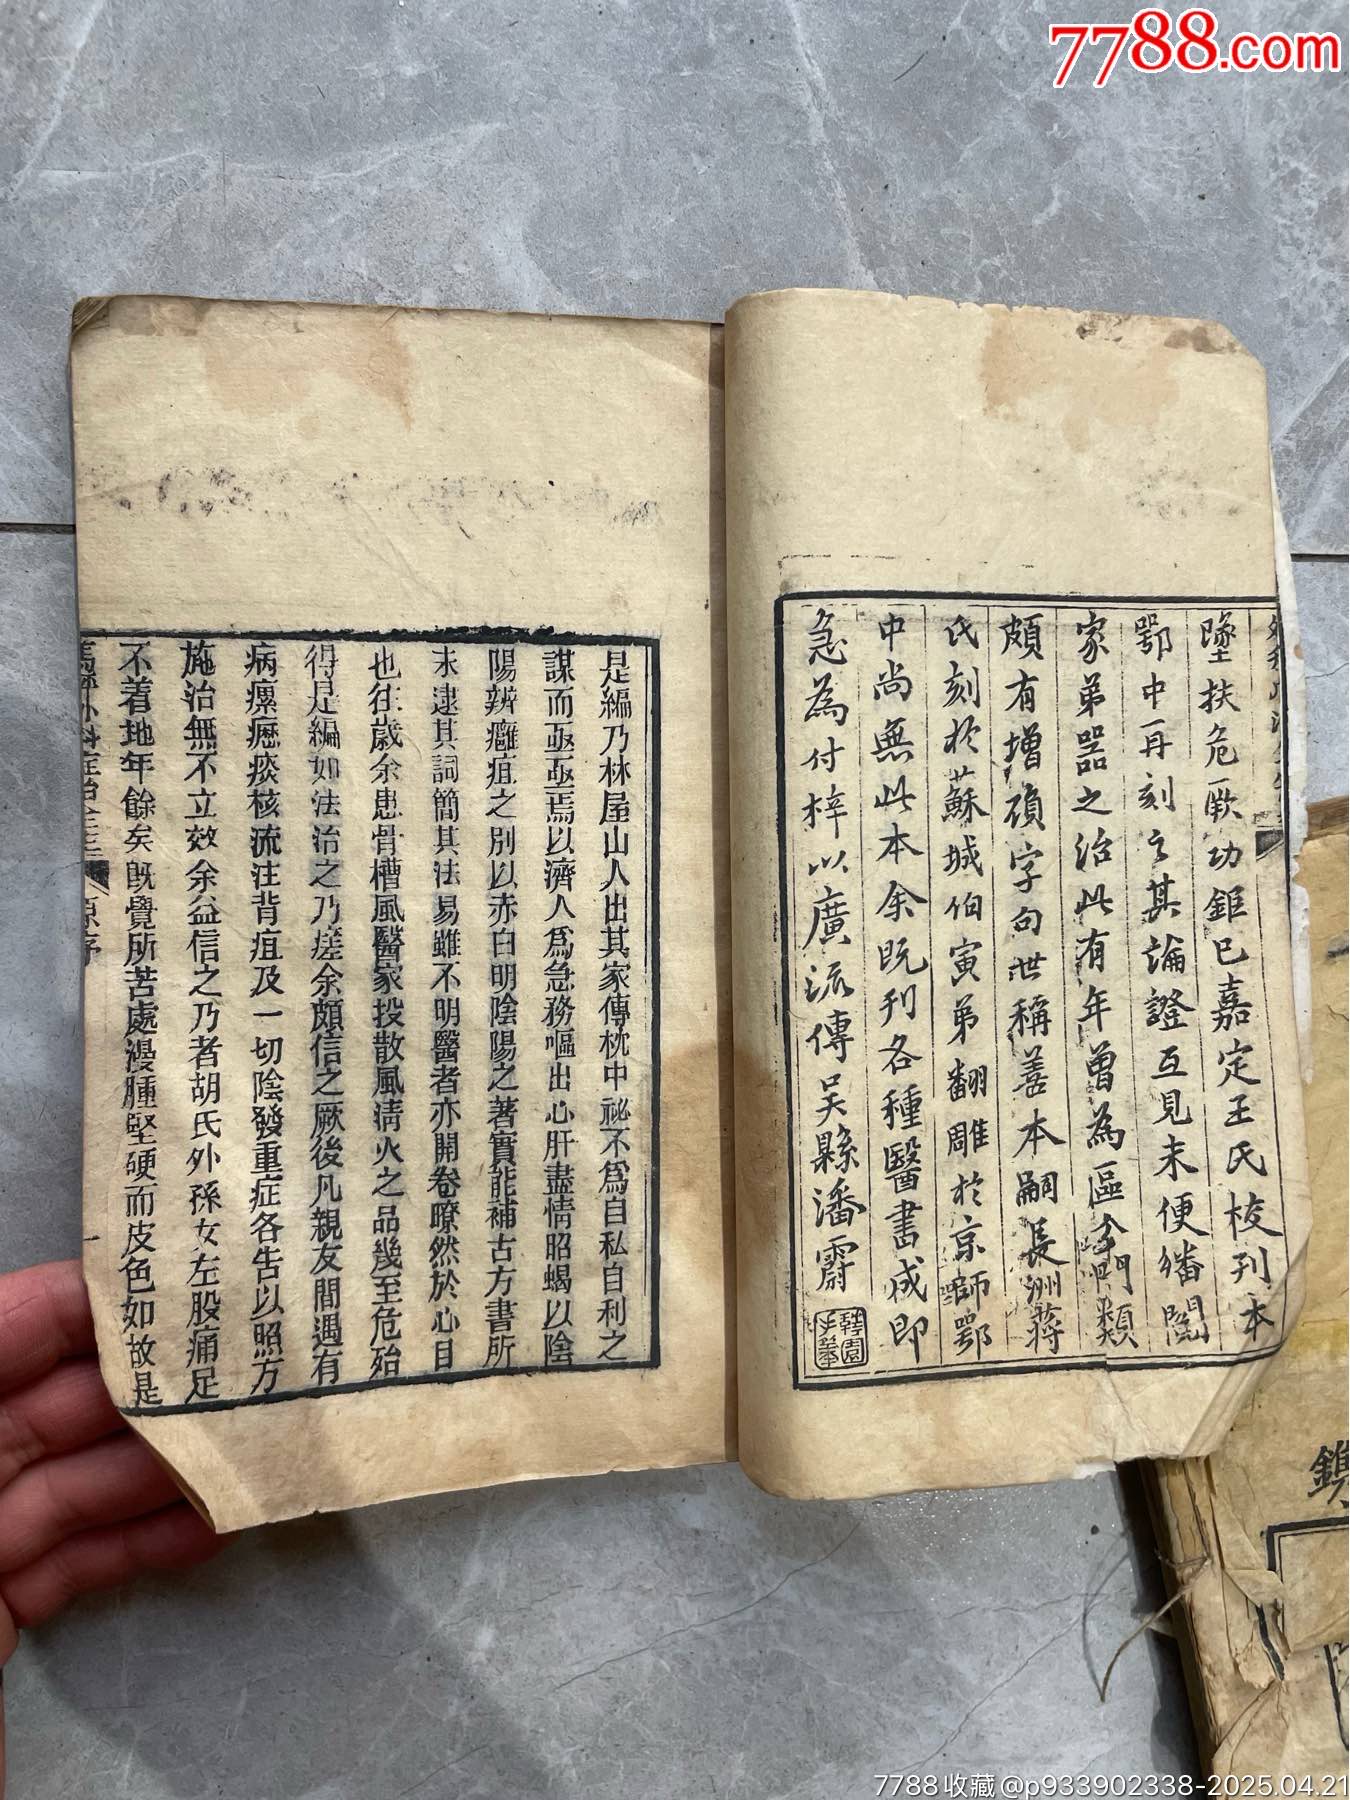 7788.com
墜扶危厥功鉅已嘉定王氏校刊本
鄂中再刻之其論證互見未便繙閱
家弟器之治此有年曾為區分門類
頗有增損字句世稱善本嗣長洲蔣
氏刻於蘇城伯寅弟翻雕於京師鄂
中尚無此本余既刊各種醫書成即
急為付梓以廣流傳吳縣潘霨
韡園
是編乃林屋山人出其家傳枕中祕不爲自私自利之
謀而亟亟焉以濟人爲急務嘔出心肝盡情昭蝎以陰
陽辨癰疽之別以赤白明陰陽之著實能補古方書所
未逮其詞簡其法易雖不明醫者亦開卷暸然於心目
也往歲余患骨槽風醫家投散風清火之品幾至危殆
得是編如法治之乃瘥余頗信之厥後凡親友間遇有
病瘰癧痰核流注背疽及一切陰發重症各告以照方
施治無不立效余益信之乃者胡氏外孫女左股痛足
不着地年餘矣旣覺所苦處漫腫堅硬而皮色如故是
外科症治全生 原序 一
鐫
7788收藏@p933902338-2025.04.21